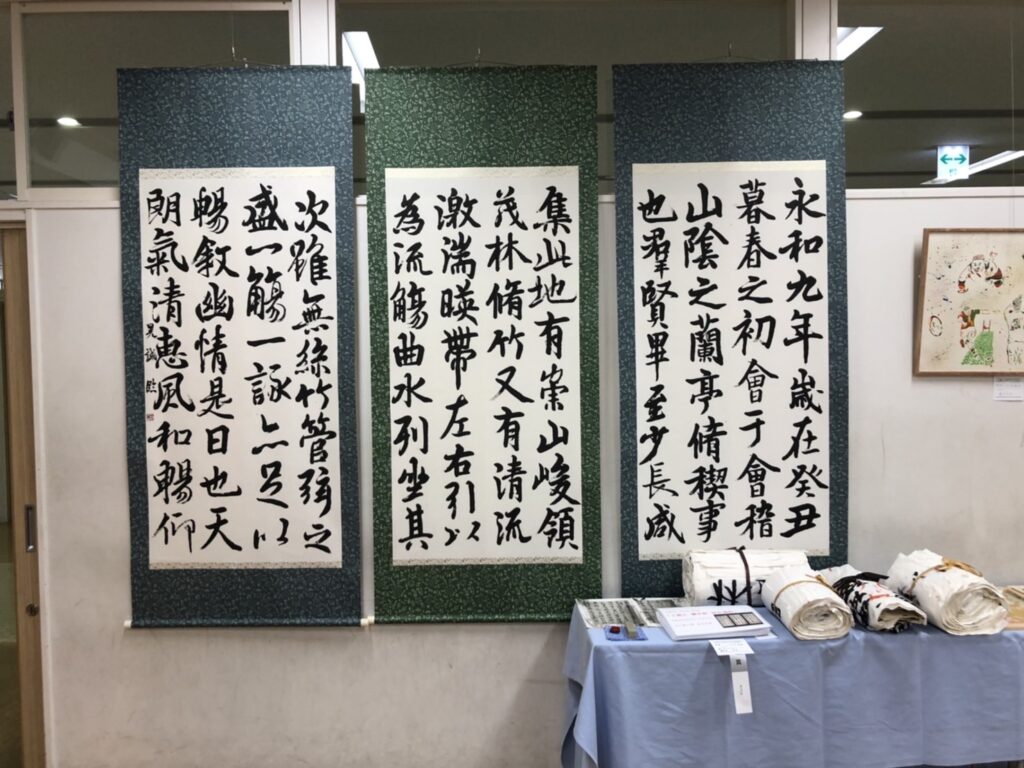 永和九年歳在癸丑
暮春之初會于會稽
山陰之蘭亭脩稧事
也羣賢畢至少長咸
集此地有崇山峻領
茂林脩竹又有清流
激湍暎帶左右引以
為流觴曲水列坐其
次雖無絲竹管弦之
盛一觴一詠亦足以
暢敘幽情是日也天
朗氣清恵風和暢仰